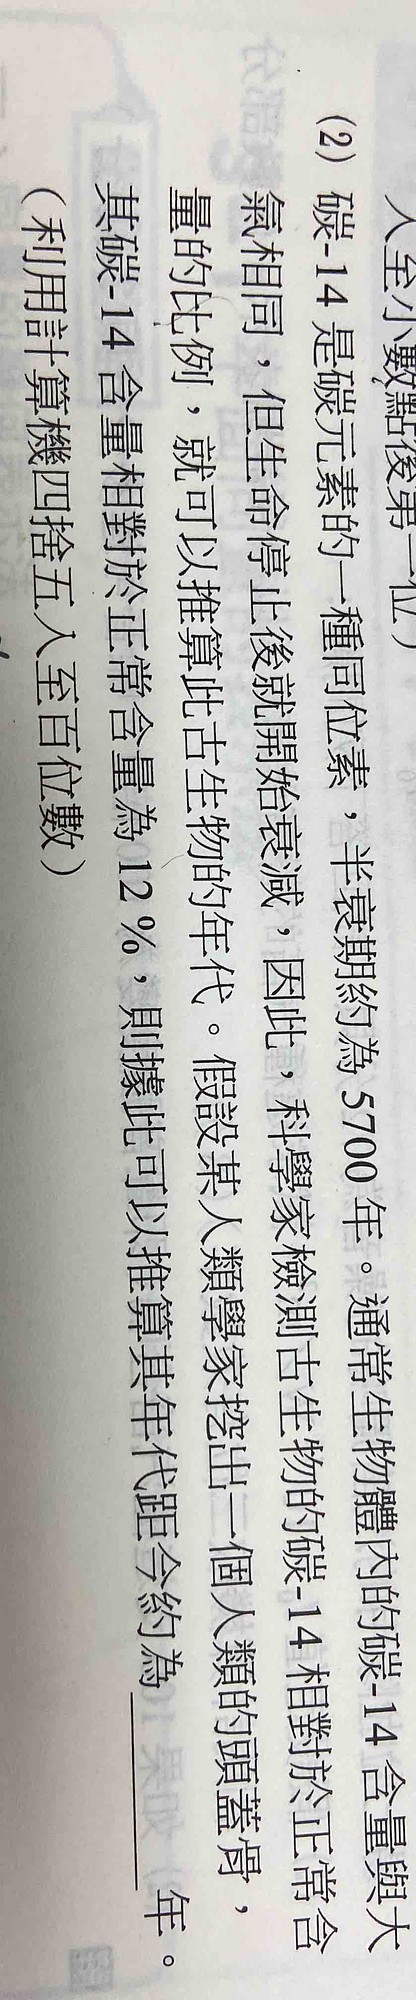 入至小數點後第一位）
(2) 碳-14 是碳元素的一種同位素，半衰期約為 5700 年。通常生物體內的碳-14 含量與大
氣相同，但生命停止後就開始衰減，因此，科學家檢測古生物的碳-14 相對於正常含
量的比例，就可以推算此古生物的年代。假設某人類學家挖出一個人類的頭蓋骨，
其碳-14 含量相對於正常含量為 12 %，則據此可以推算其年代距今約為______年。
（利用計算機四捨五入至百位數）